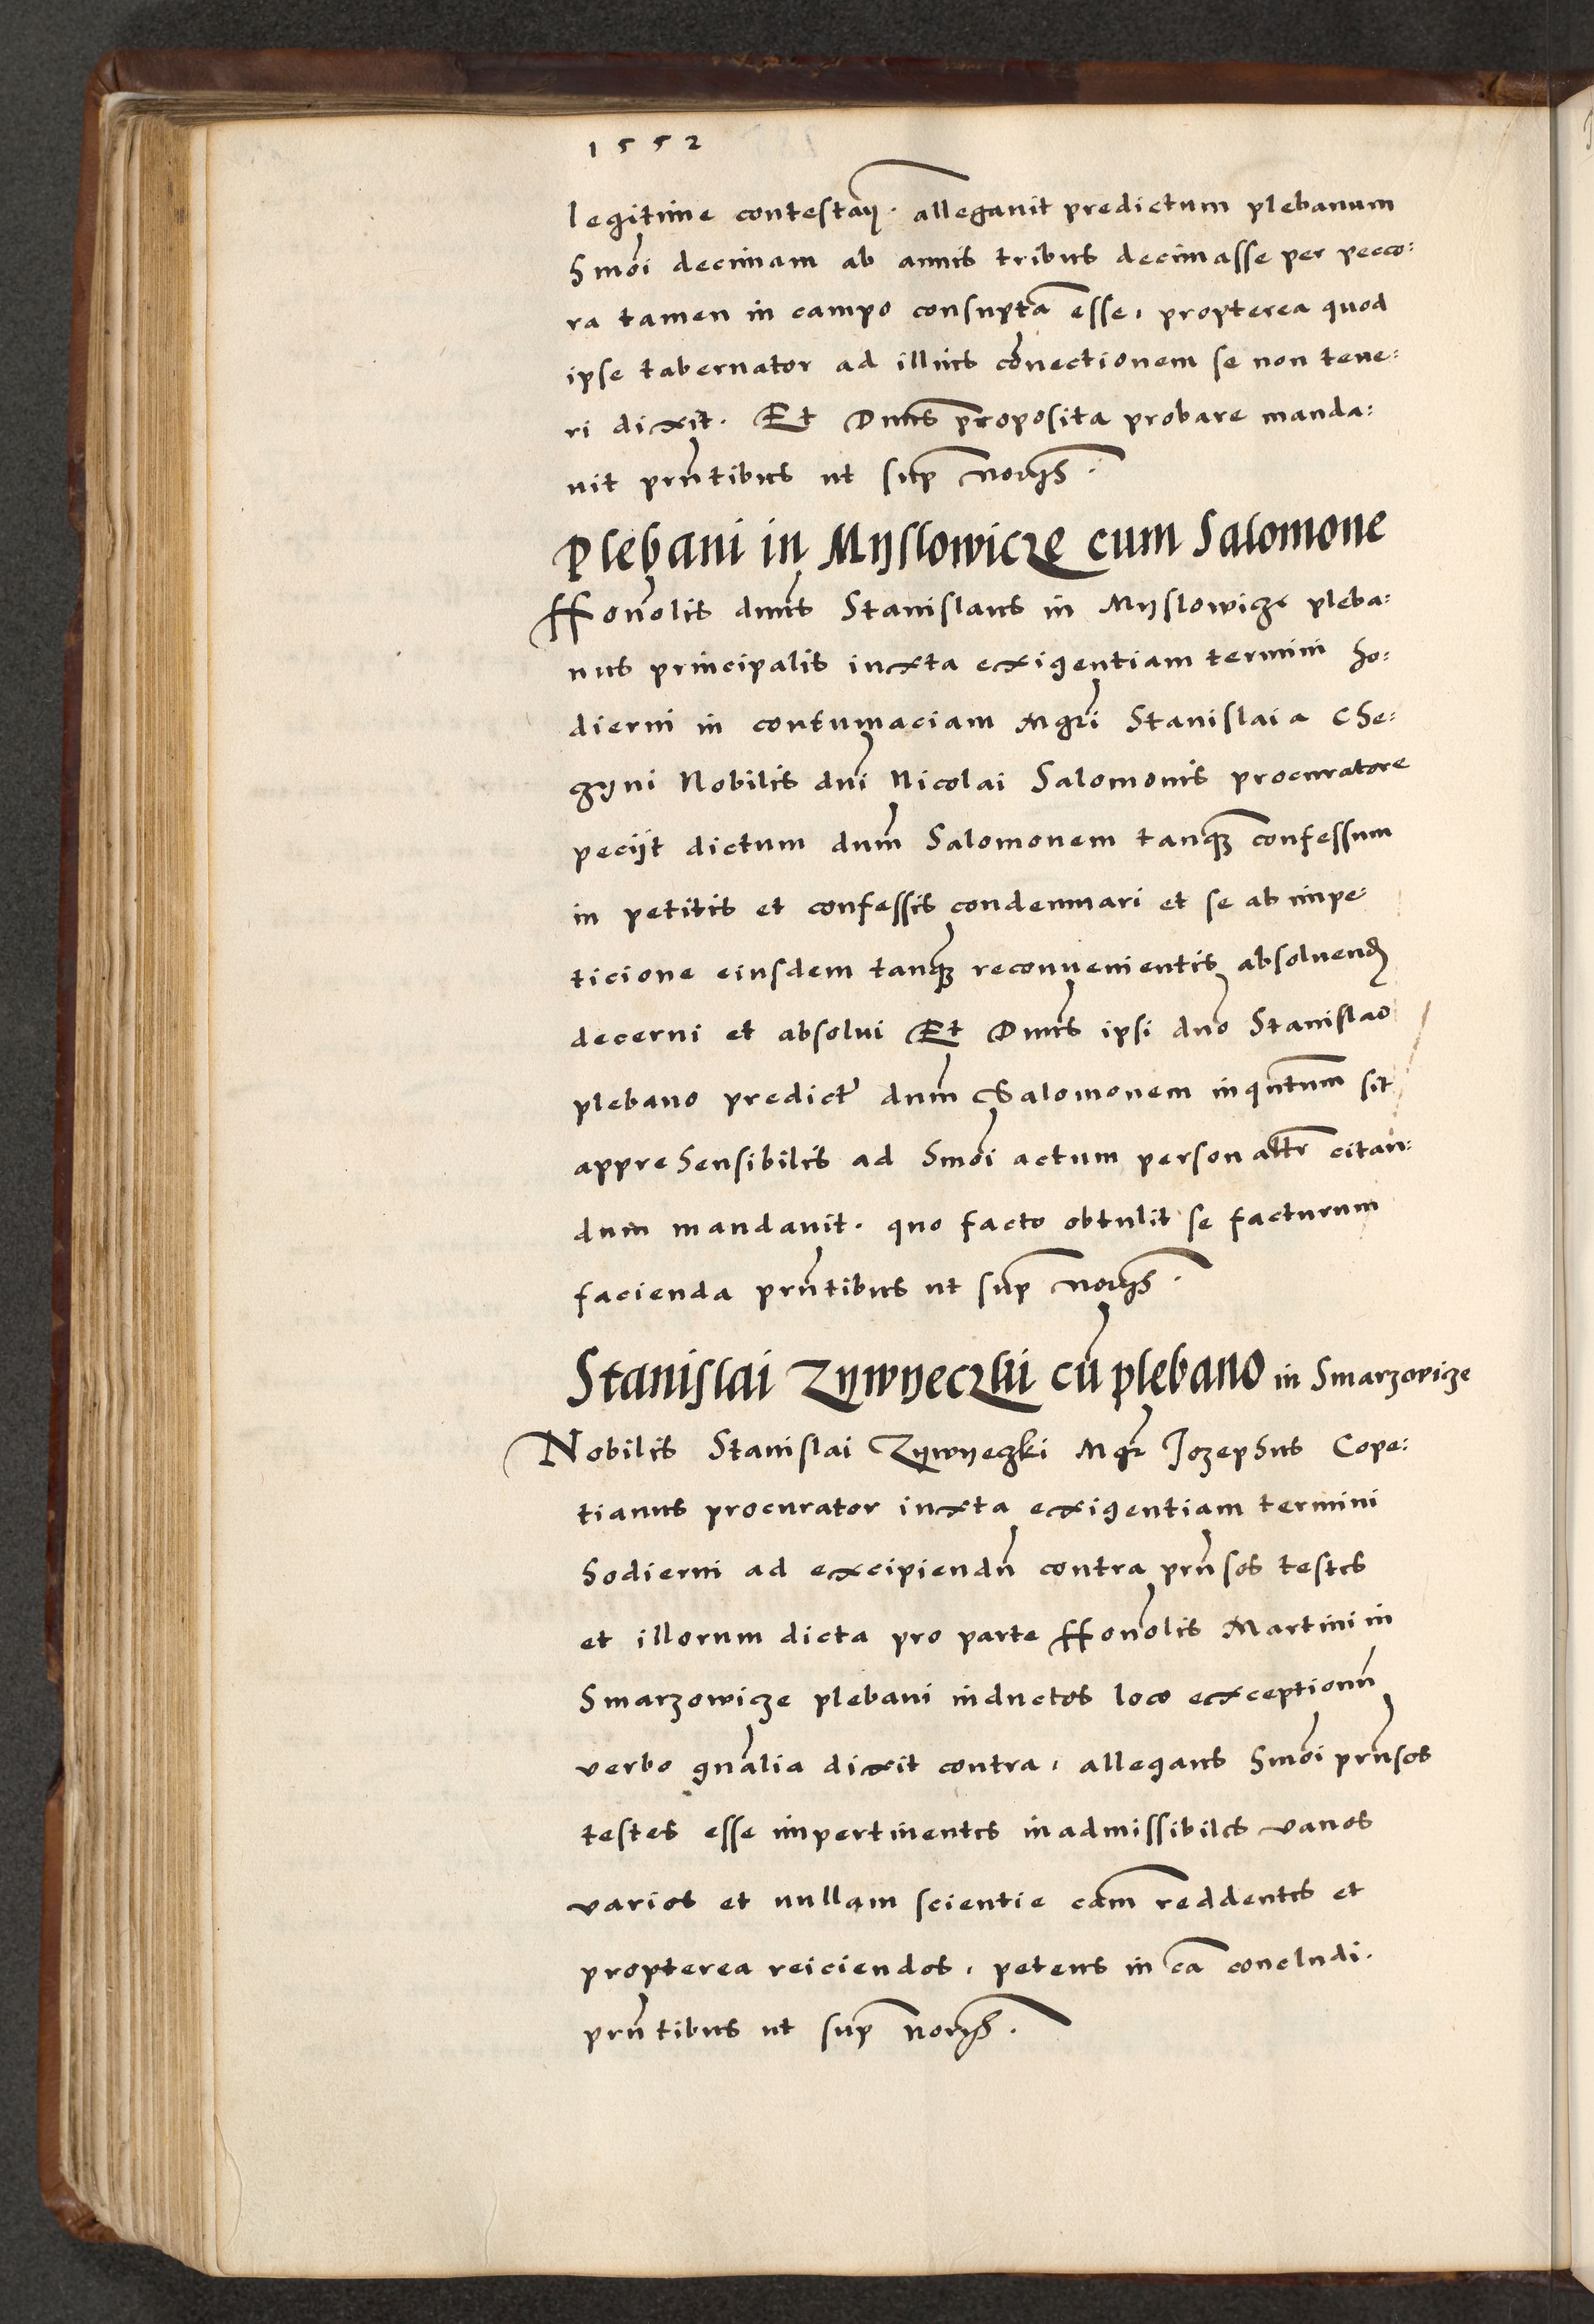 1552
legitime contestaŋ. allegavit predictum plebanum
hmõi decimam ab annis tribus decimasse per pecco:
ra tamen in campo consuptã esse, propterea quod
ipse tabernator ad illius cõvectionem se non tene:
ri dixit. Et Dnũs proposita probare manda:
vit prñtibus ut sup
Plebani in Myslowicze cum Salomone
Honõlis dnũs Stanislaus in Myslowicze pleba:
nus principalis iuxta exigentiam termini ho:
dierni in contumaciam Mgrĩ Stanislai a Che:
gyni Nobilis dnĩ Nicolai Salomonis procuratore
peciit dictum dnũm Salomonem tanq̃ confessum
in petitis et confessis condemnari et se ab impe
ticione eiusdem tanq̃ reconvenientis absolvend
decerni et absolvi Et Dnũs ipsi dnõ Stanislao
plebano predict dnũm Salomonem inqñtum sit
apprehensibilis ad hmõi actum personaltr citan:
dum mandavit. quo facto obtulit se facturum
facienda prñtibus ut sup
Stanislai Zywyeczkii cũ plebano in Smarzowicze
Nobilis Stanislai Zywyeczki Mgr Jozephus Cope:
tianus procurator iuxta exigentiam termini
hodierni ad excipiendũ contra prñsos testes
et illorum dicta pro parte Honõlis Martini in
Smarzowicze plebani inductos loco exceptionũ
verbo gnãlia dixit contra, allegans hmõi prñsos
testes esse impertinentes inadmissibiles vanos
varios et nullam scientie cam reddentes et
propterea reiciendos, petens in cã concludi.
prñtibus ut sup